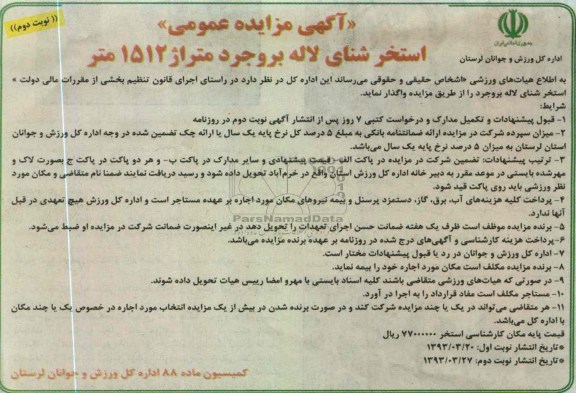 «آگهی مزایده عمومی»
(( نوبت دوم))
استخر شنای لاله بروجرد متراژ ۱۵۱۲ متر
جمهوری اسلامی ایران
اداره کل ورزش و جوانان لرستان
به اطلاع هیات‌های ورزشی «اشخاص حقیقی و حقوقی می‌رساند این اداره کل در نظر دارد در راستای اجرای قانون تنظیم بخشی از مقررات مالی دولت »
استخر شنای لاله بروجرد را از طریق مزایده واگذار نماید.
شرایط:
۱- قبول پیشنهادات و تکمیل مدارک و درخواست کتبی ۷ روز پس از انتشار آگهی نوبت دوم در روزنامه
۲- میزان سپرده شرکت در مزایده ارائه ضمانتنامه بانکی به مبلغ ۵ درصد کل نرخ پایه یک سال یا ارائه چک تضمین شده در وجه اداره کل ورزش و جوانان
استان لرستان به میزان ۵ درصد نرخ پایه یک سال می‌باشد.
۳- ترتیب پیشنهادات: تضمین شرکت در مزایده در پاکت الف -قیمت پیشنهادی و سایر مدارک در پاکت ب- و هر دو پاکت در پاکت ج بصورت لاک و
مهرشده بایستی در موعد مقرر به دبیر خانه اداره کل ورزش استان واقع در خرم‌آباد تحویل داده شود و رسید دریافت نمایند ضمنا نام متقاضی و مکان مورد
نظر ورزشی باید روی پاکت قید شود.
۴- پرداخت کلیه هزینه‌های آب، برق، گاز، دستمزد پرسنل و بیمه نیروهای مکان مورد اجاره بر عهده مستاجر است و اداره کل ورزش هیچ تعهدی در قبل
آنها ندارد.
۵- برنده مزایده موظف است ظرف یک هفته ضمانت حسن اجرای تعهدات را تحویل دهد در غیر اینصورت ضمانت شرکت در مزایده او ضبط می‌شود.
۶-پرداخت هزینه کارشناسی و آگهی‌های درج شده در روزنامه بر عهده برنده مزایده می‌باشد.
۷- اداره کل ورزش و جوانان در رد یا قبول پیشنهادات مختار است.
۸- برنده مزایده مکلف است مکان مورد اجاره خود را بیمه نماید.
۹- در صورتی که هیات‌های ورزشی متقاضی باشند کلیه اسناد بایستی با مهرو امضا رییس هیات تحویل داده شوند.
۱۰- مستاجر مکلف است مفاد قرارداد را به اجرا در آورد.
۱۱- هر متقاضی می‌تواند در یک یا چند مزایده شرکت کند و در صورت برنده شدن در بیش از یک مزایده انتخاب مورد اجاره در خصوص یک یا چند مکان
با اداره کل می‌باشد.
قیمت پایه مکان کارشناسی استخر ۷۷۰۰۰۰۰۰ ریال
*تاریخ انتشار نوبت اول: ۱۳۹۳/۰۳/۲۰
*تاریخ انتشار نوبت دوم: ۱۳۹۳/۰۳/۲۷
کمیسیون ماده ۸۸ اداره کل ورزش و جوانان لرستان
ParsNamadData